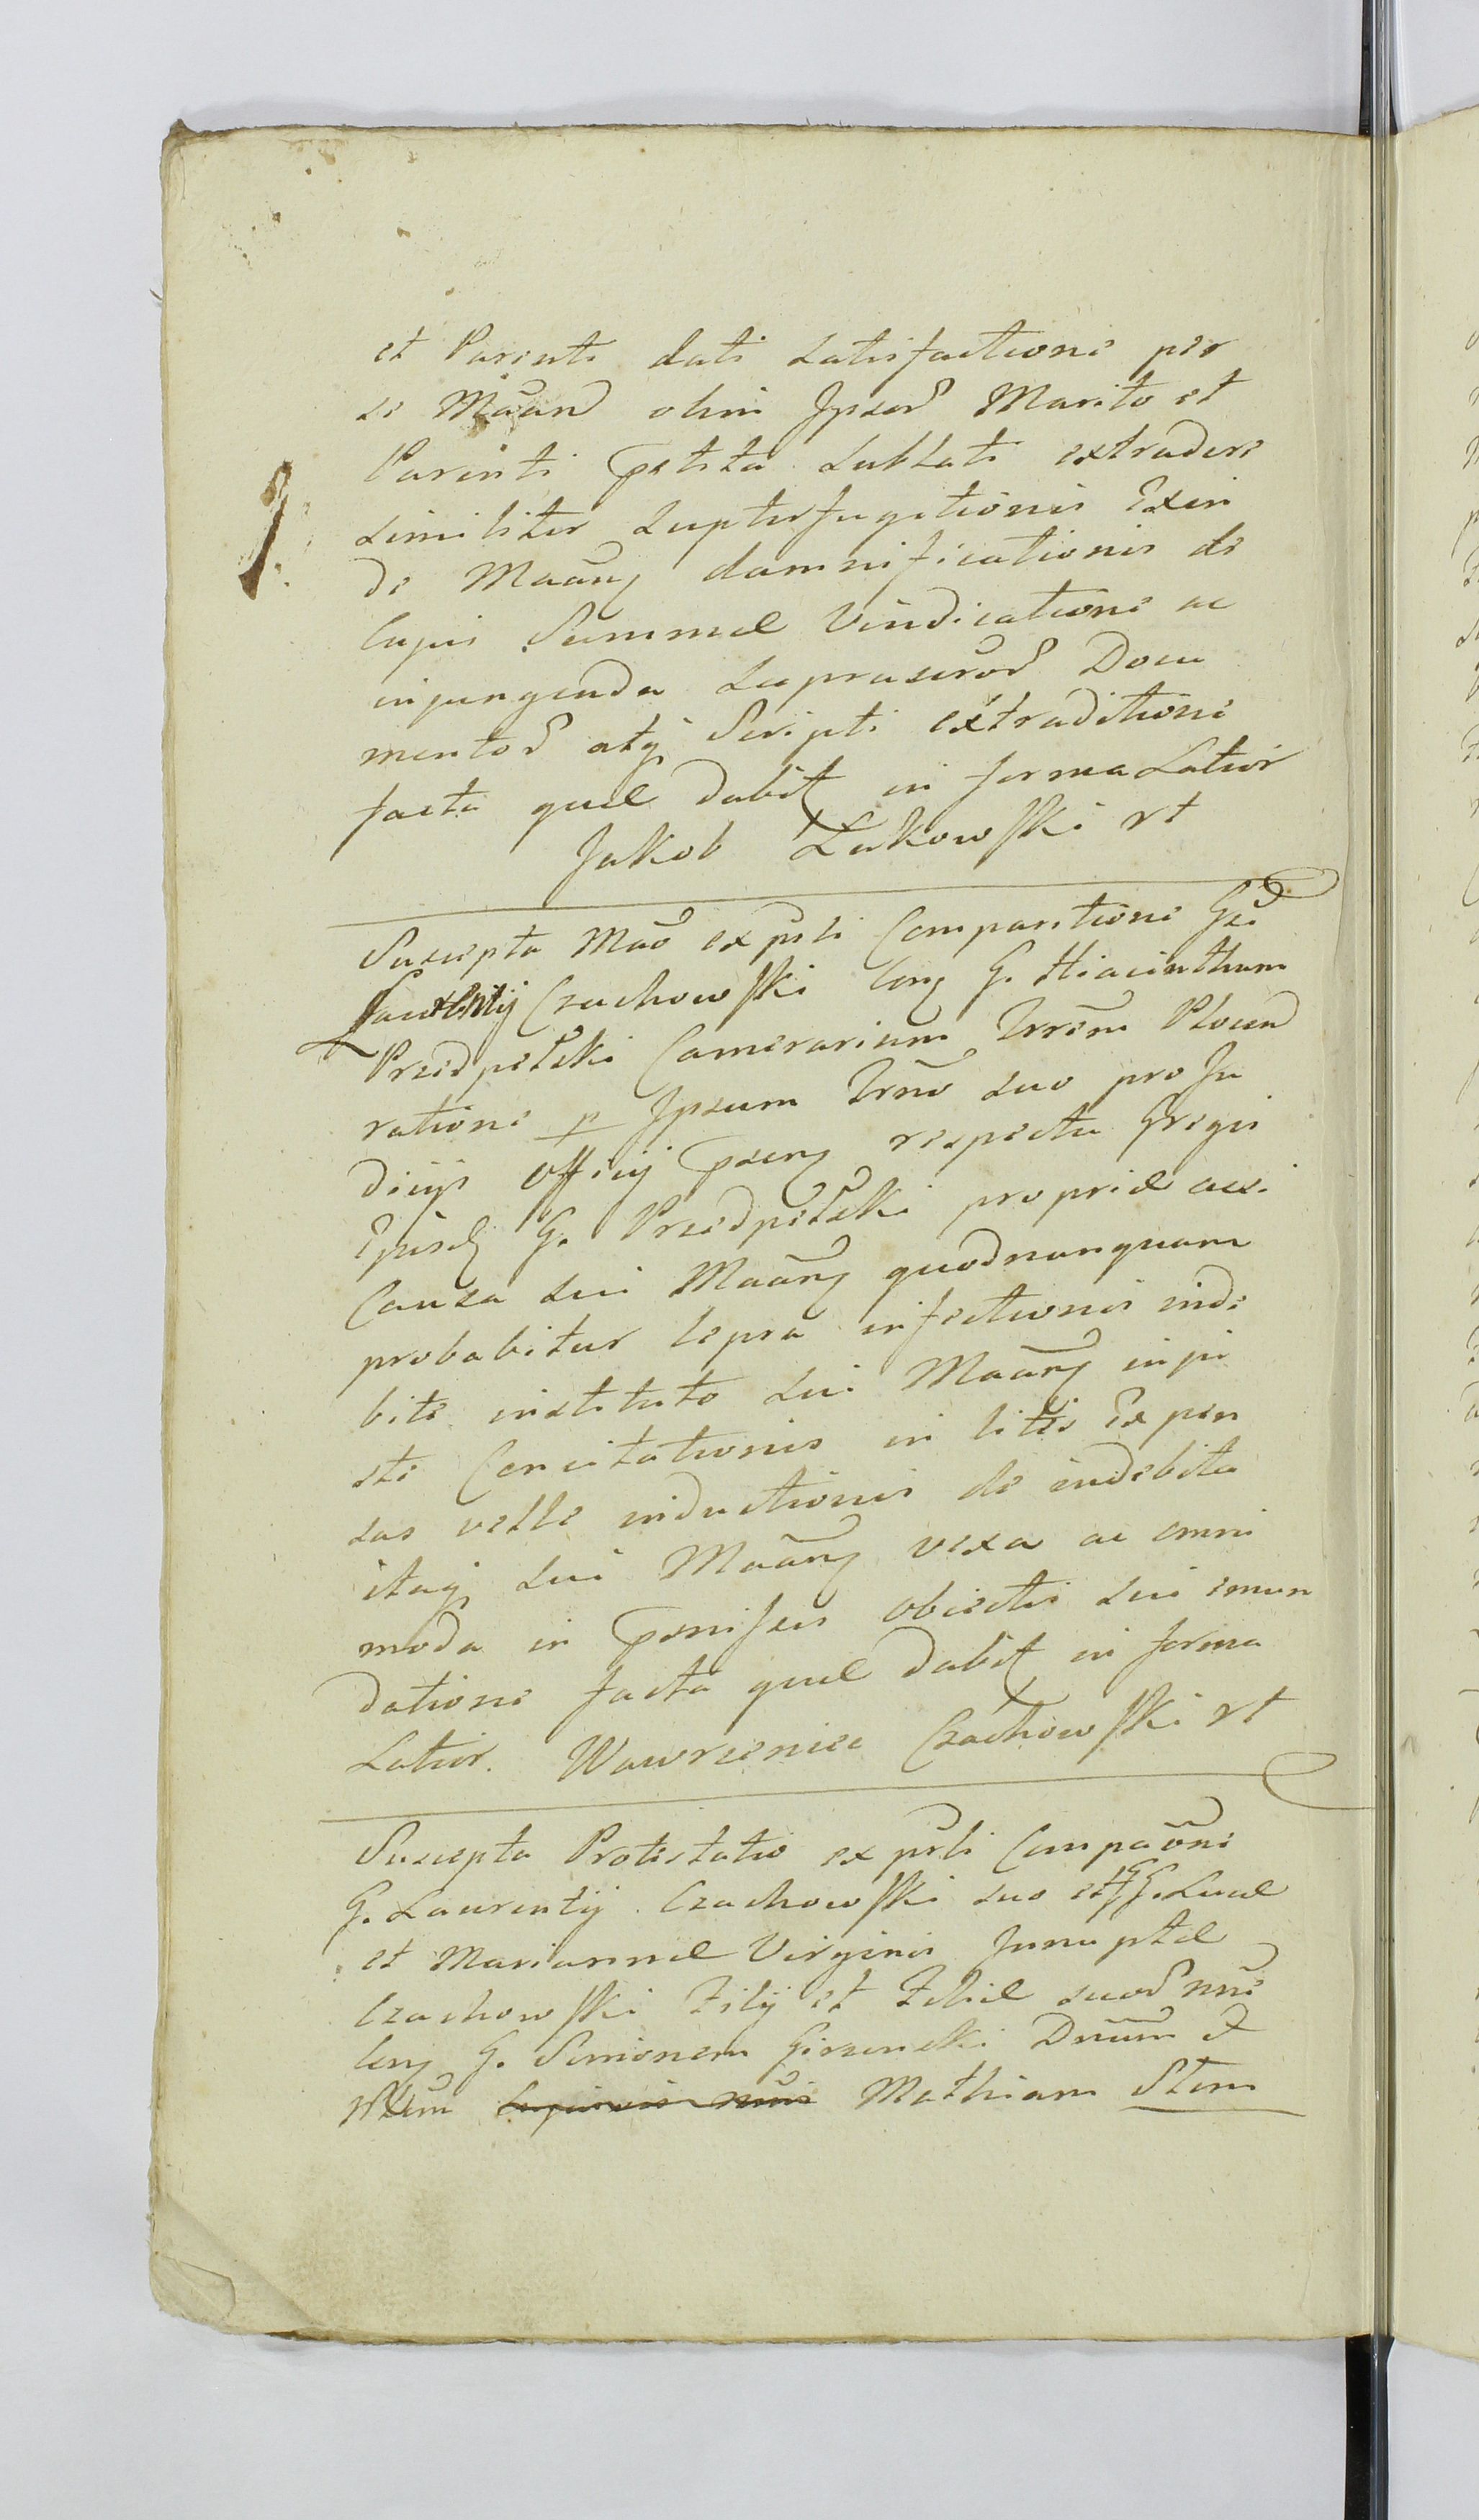 et Parenti dati satisfactione per
se Māan̄ olim Ipsor̄ Marito et
Parenti p̄stita sublati extradere
similiter supterfugitionis Exin
de Māan̄ damnificationis de
cujus Summae Vindicatione ac
injungenda suprascrōr̄ Docu
mentor̄ atq̨ Scripti extraditione
facta quae dabit in forma Latior
Jakob Łukowski rt
Suscepta Māo ex pr̄li Comparitione Gsi
Laurentij Czachowski cong G. Hiacinthum
Przedpełski Camerarium Trr̄em Plocen̄
ratione p Ipsum Tr̄no suo pro Ju
dicijs Officij p̄seng respectu Gregis
Ejusd G. Przedpełski propriae
Causa sui Māang quod nunquam
probabitur lepra infectionis inde
bite instituto sui Māang inju
ste Concitationis in litis Expen
sas velle inductionis de indebita
itaq̨ sui Māang vexa ac omni
moda in p̄missis obiectis sui emun
datione facta quae dabit in forma
Latior. Wawrzeniec Czachowski rt
Suscepta Protestatio ex pr̄li Compāōne
G. Laurentij Czachowski suo et GG. Lucae
et Mariannae Virginis Innuptae
Czachowski Filij et Filiae suor̄ nn̄e
cong G. Simonem Girzenski Dn̄um et
Mathiam Stem